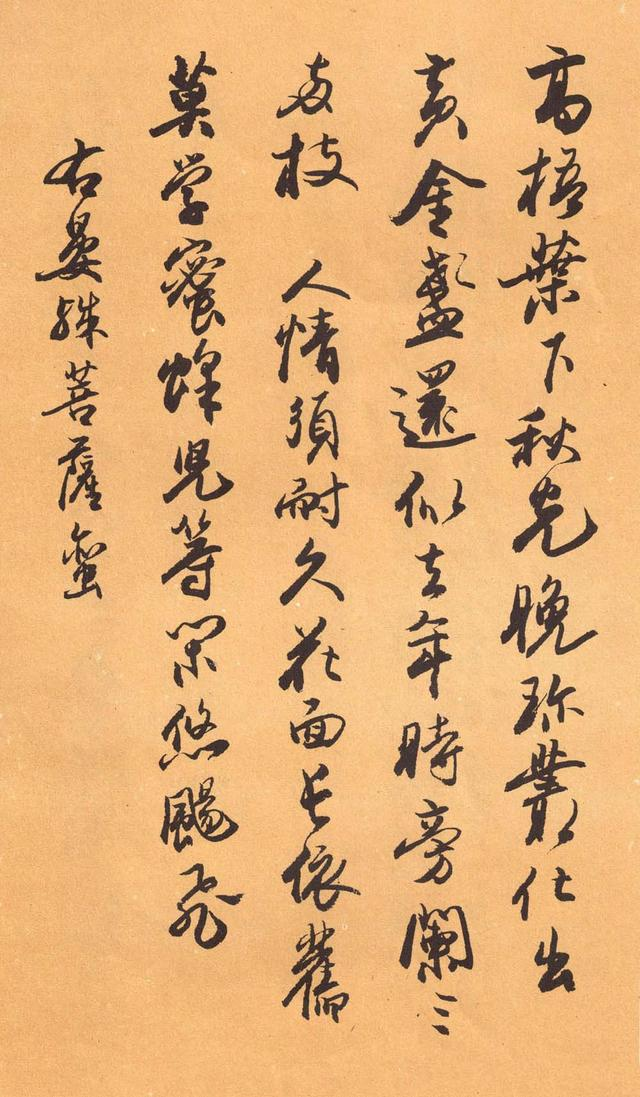 高梧葉下秋光晚珍叢化出
黃金盞還似去年時旁闌三
兩枝 人情須耐久花面長依舊
莫學蜜蜂兒等閑悠颺飛
右晏殊菩薩蠻